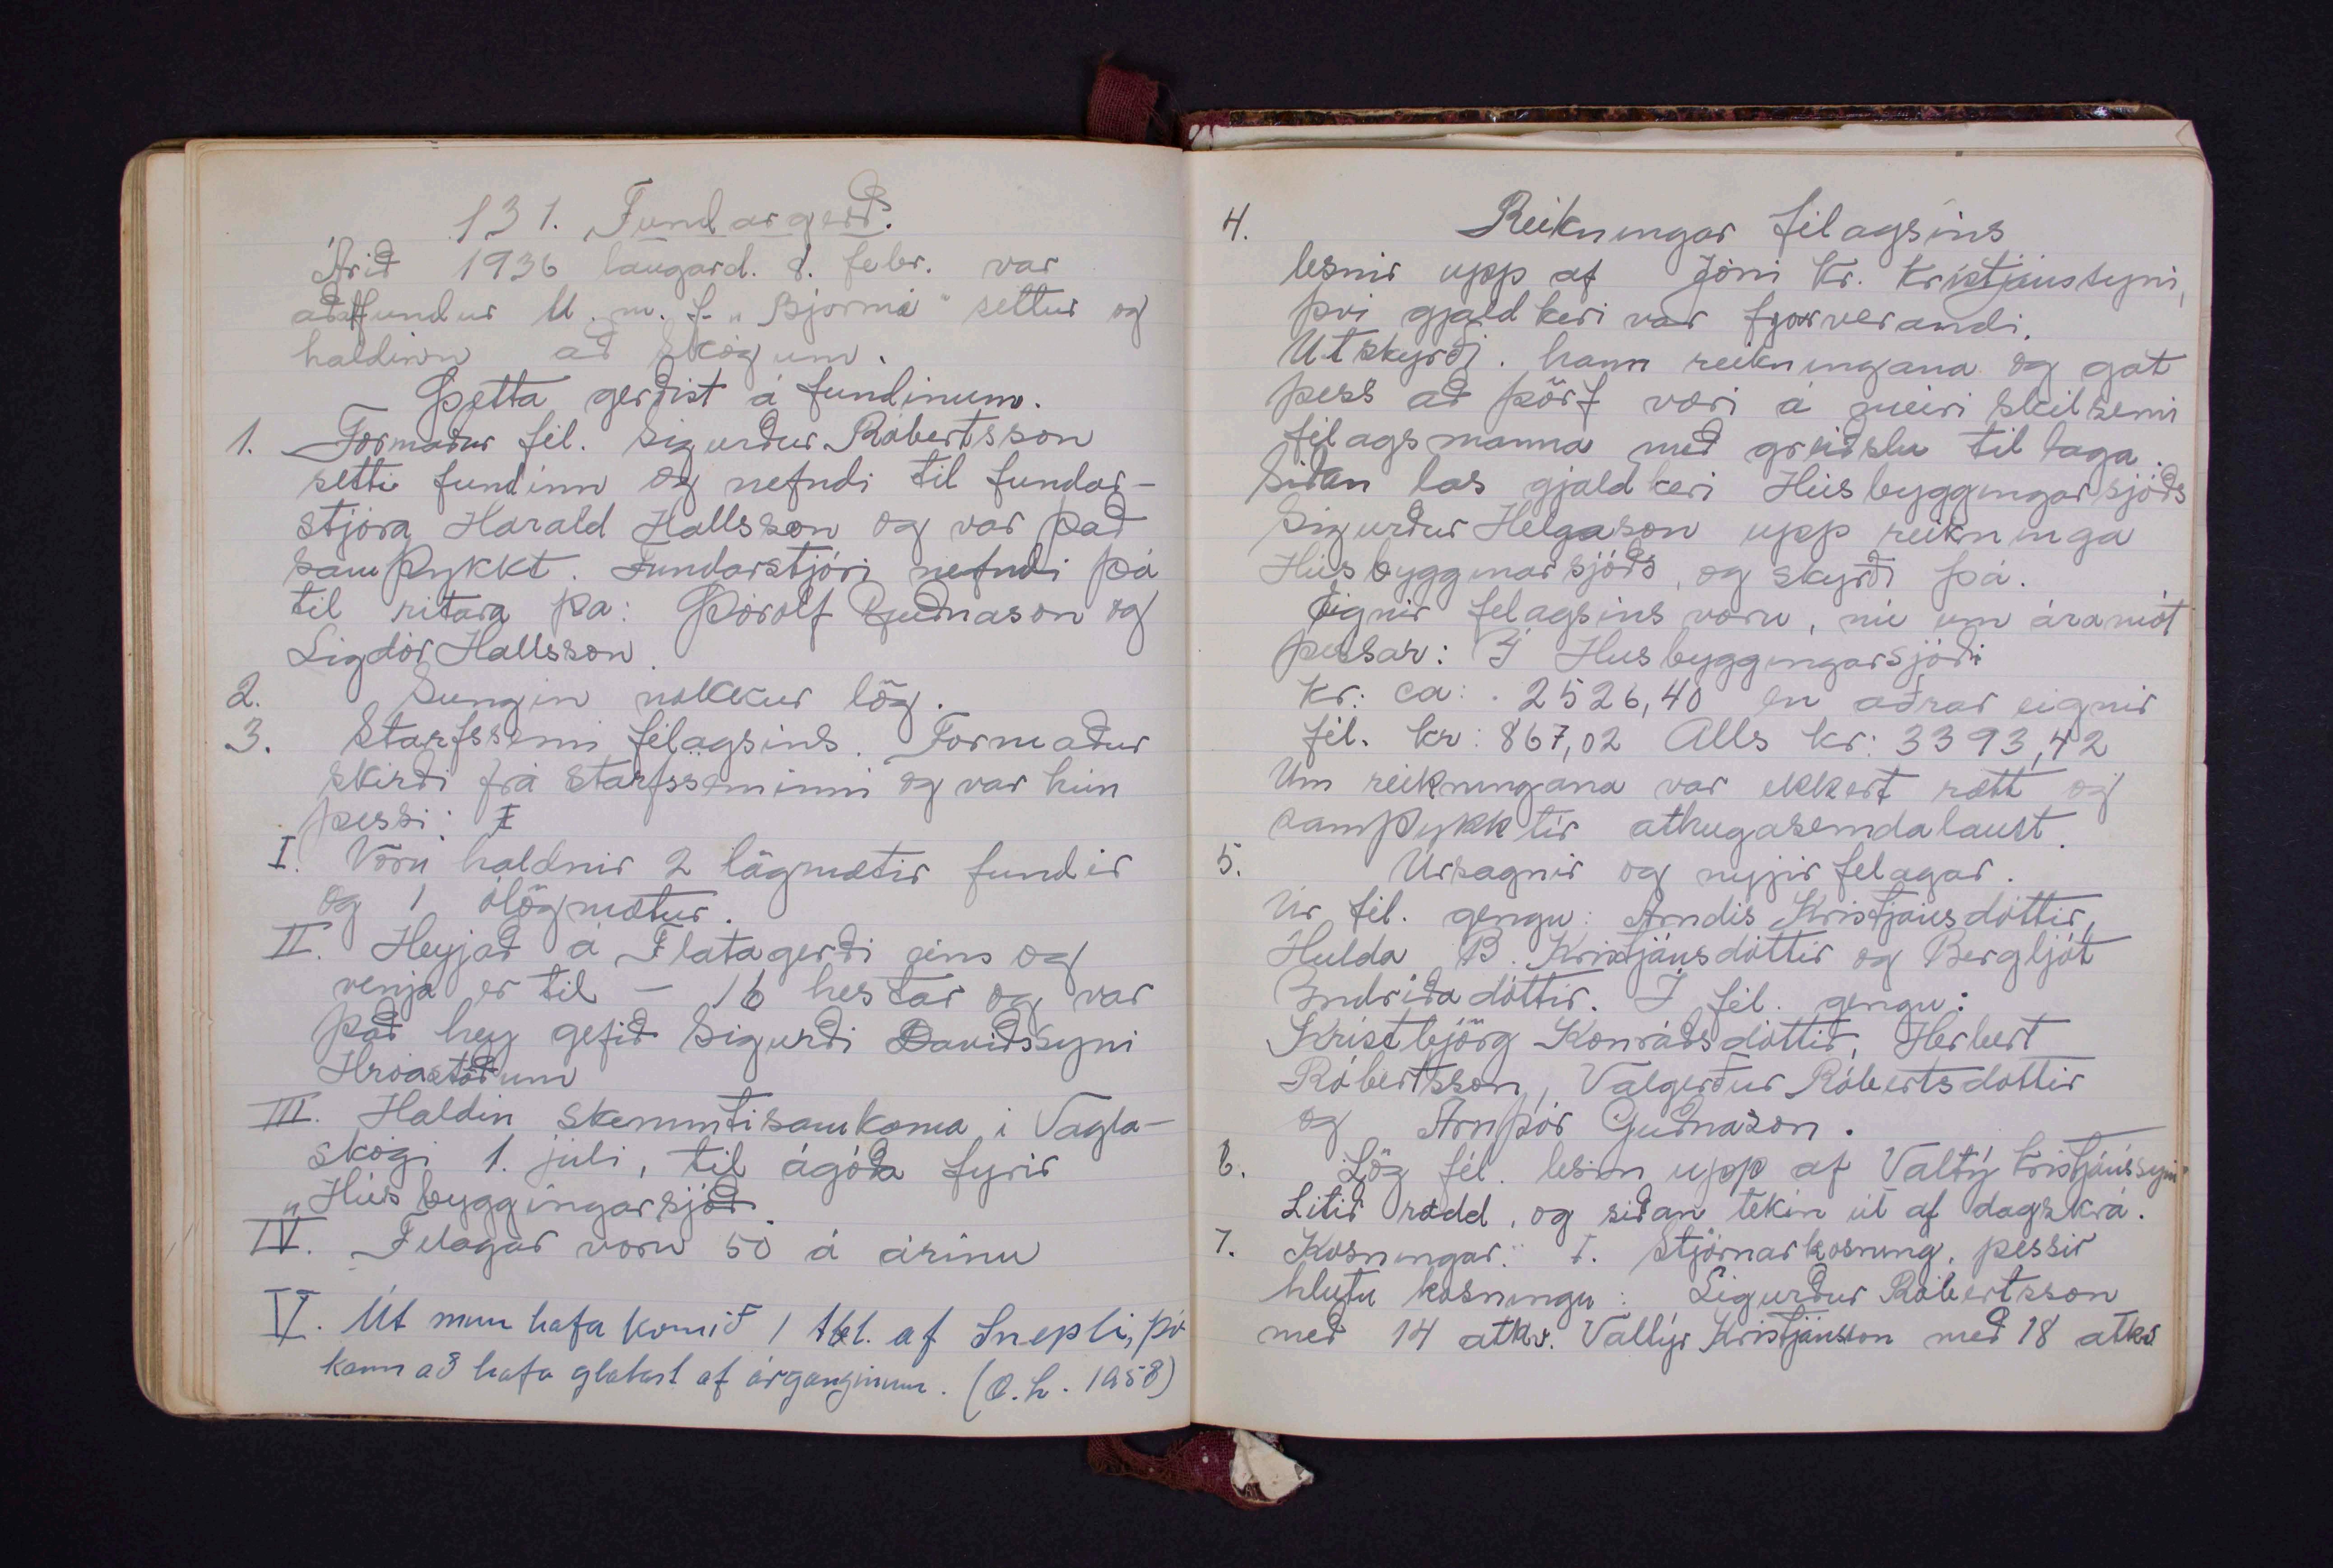 131. Fundargerð.
Árið 1936 laugard. 8. febr. var
aðalfundur U. m. f. „Bjarmi" settur og
haldinn að Skógum.
Þetta gerðist á fundinum.
1. Formaður fél. Sigurður Róbertsson
setti fundinn og nefndi til fundar-
stjóra Harald Hallsson og var það
samþykkt. Fundarstjóri nefndi þá
til ritara þa: Þórolf Guðnason og
Sigdór Hallsson.
2. Sungin nokkur lög.
3. Starfssemi félagsins. Formaður
skirði frá starfsseminni og var hún
þessi: I
I. Voru haldnir 2 lögmætir fundir
og 1 ólögmætur.
II. Heyjað á Flatagerði eins og
venja er til – 16 hestar og var
það hey gefið Sigurði Davíðssyni
Hróastöðum
III. Haldin skemmtisamkoma i Vagla-
skógi 1. júlí, til ágóða fyrir
„Húsbyggingarsjóð
IV. Felagar voru 50 á árinu
V. Út mun hafa komið 1 tbl. af Snepli, þó
kann að hafa glatast af árganginum. (O.h. 1958)
4. Reikningar félagsins
lesnir upp af Jóni Kr. Kristjánssyni,
því gjaldkeri var fjarverandi.
Útskyrði. hann reikningana og gat
þess að þörf væri á meiri skilsemi
félagsmanna með greiðslu tillaga.
Síðan las gjaldkeri Húsbyggingarsjóðs
Sigurður Helgason upp reikninga
Húsbygginarsjóðs, og skyrði þá.
Eignir felagsins voru, nú um áramót
þessar: Í Husbyggingarsjóði
Kr: ca: . 2526,40 en aðrar eignir
fél. kr: 867,02 Alls kr: 3393,42
Um reikningana var ekkert rætt og
samþykktir athugasemdalaust.
5. Úrsagnir og nyjir felagar.
Úr fél. gengu: Arndís Kristjánsdóttir,
Hulda B. Kristjánsdóttir og Bergljót
Indriðadóttir. Í fél. gengu:
Kristbjörg Konráðsdóttir, Herbert
Róbertsson, Valgerður Róbertsdóttir
og Arnþór Guðnason.
6. Lög fél. lesin upp af Valtý Kristjánssyni
Litið rædd, og siðan tekin út af dagskrá.
7. Kosningar: I. Stjórnarkosning, þessir
hlutu kosningu: Sigurður Róbertsson
með 14 atkv. Valtýr Kristjánsson með 18 atkv